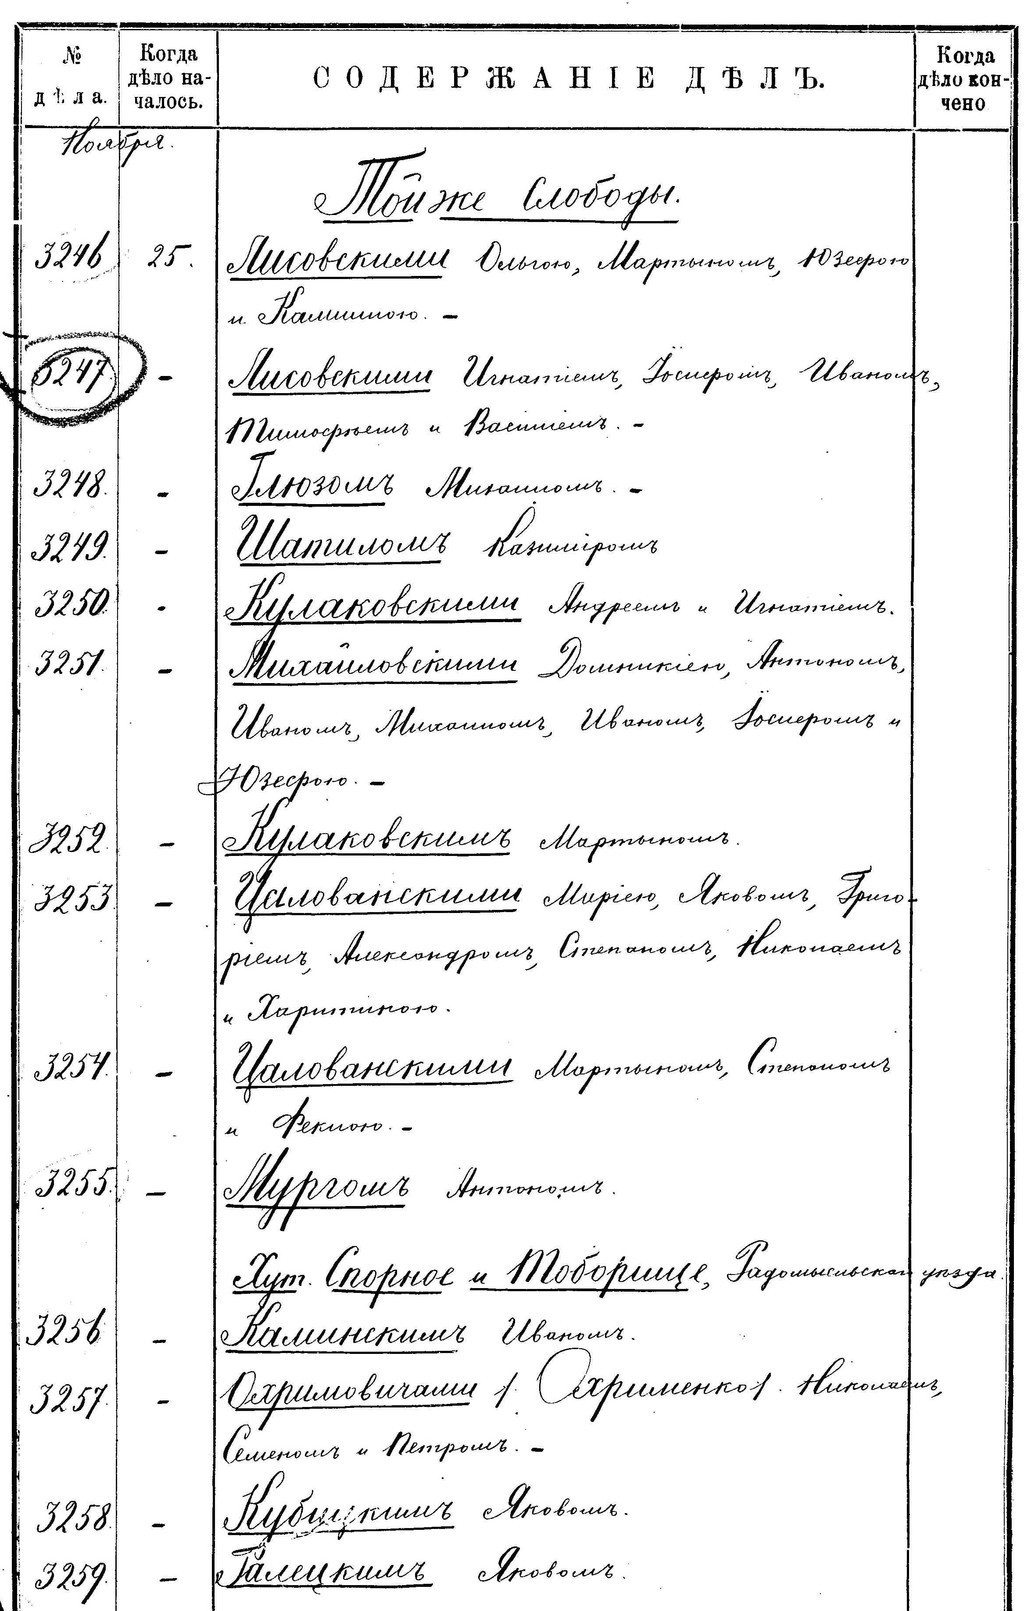 № дѣла.
Когда дѣло началось.
СОДЕРЖАНІЕ ДѢЛЪ.
Когда дѣло кончено
Ноября.
Тойже Слободы.
3246 25. Лисовскими Ольгою, Мартыномъ, Юзефою
и Калиною. –
3247 – Лисовскими Игнатіемъ, Іосифомъ, Иваномъ,
Тимофѣемъ и Василіемъ. –
3248. – Глюзомъ Михаиломъ. –
3249. – Шатиломъ Казимiромъ
3250. – Кулаковскими Андреемъ и Игнатіемъ.
3251. – Михайловскими Домникіею, Антономъ,
Иваномъ, Михаиломъ, Иваномъ, Іосифомъ и
Юзефою. –
3252. – Кулаковскимъ Мартыномъ.
3253 – Цалованскими Маріею, Яковомъ, Григо-
ріемъ, Александромъ, Степаномъ, Николаемъ
и Харитиною.
3254. – Цалованскими Мартыномъ, Степаномъ
и Феклою. –
3255. – Мургомъ Антономъ.
Хут. Спорное и Тоборище, Радомысльскаго уѣзда.
3256 – Каминскимъ Иваномъ.
3257. – Охримовичами /. Охрименко/. Николаемъ,
Семеномъ и Петромъ. –
3258 – Кубицкимъ Яковомъ.
3259. – Галецкимъ Яковомъ.